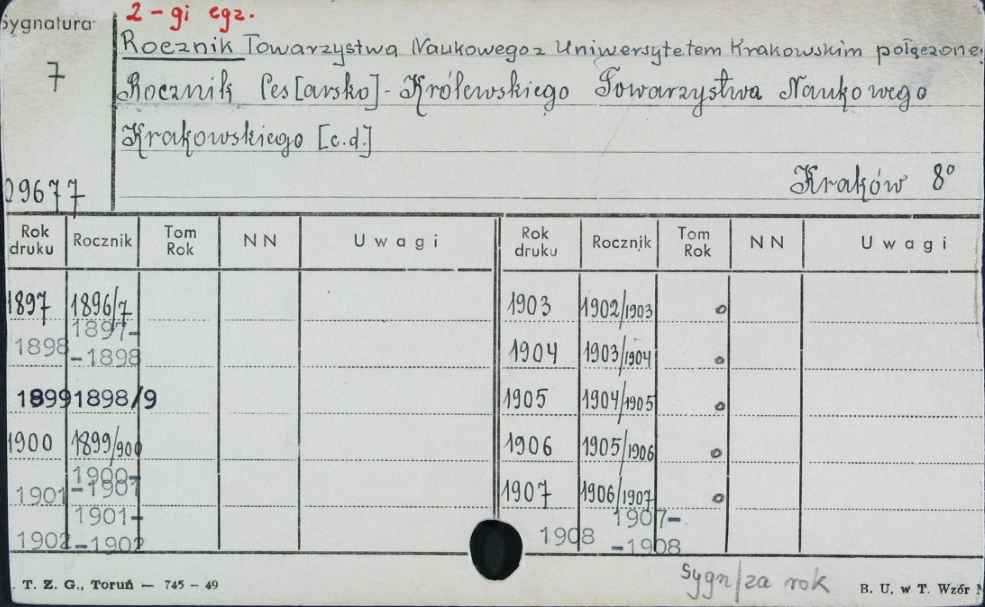 2-gi egz.
Sygnatura
Rocznik Towarzystwa Naukowego z Uniwersytetem Krakowskim połączone
7
Rocznik Ces[arsko]-Królewskiego Towarzystwa Naukowego
Krakowskiego [c.d.]
Kraków 8°
09677
Rok druku Rocznik Tom Rok NN Uwagi Rok druku Rocznik Tom Rok NN Uwagi
1897 1896/7 1903 1902/1903 o
1898 1897-1898 1904 1903/1904 o
1899 1898/9 1905 1904/1905 o
1900 1899/900 1906 1905/1906 o
1901 1900-1901 1907 1906/1907 o
1902 1901-1902 1908 1907-1908
Sygn/za rok
T. Z. G., Toruń — 745 - 49
B. U. w T. Wzór